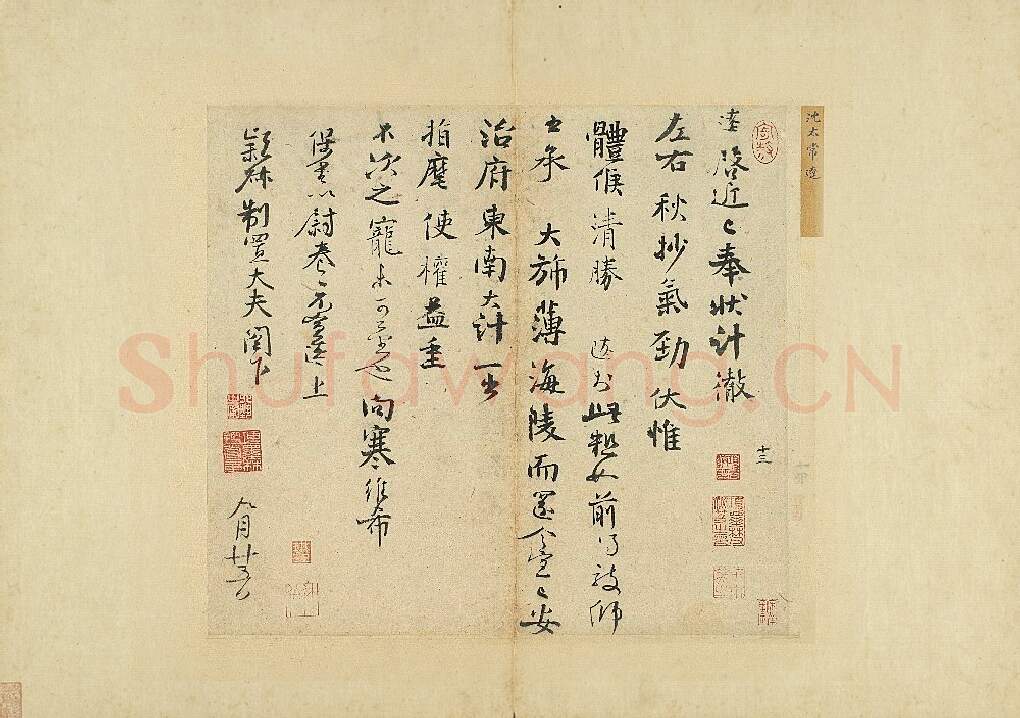 沈太常遼
遼啓近々奉狀計徹
左右秋抄氣勁伏惟
體候清勝遼於此粗如前
承大旆薄海陵而還今
治府東南大計一出
指麾使權益重
不次之寵未可量也向寒維希
保重以尉卷卷不宣遼上
制置大夫閣下
九月廿五日
十三
Shufawang.CN